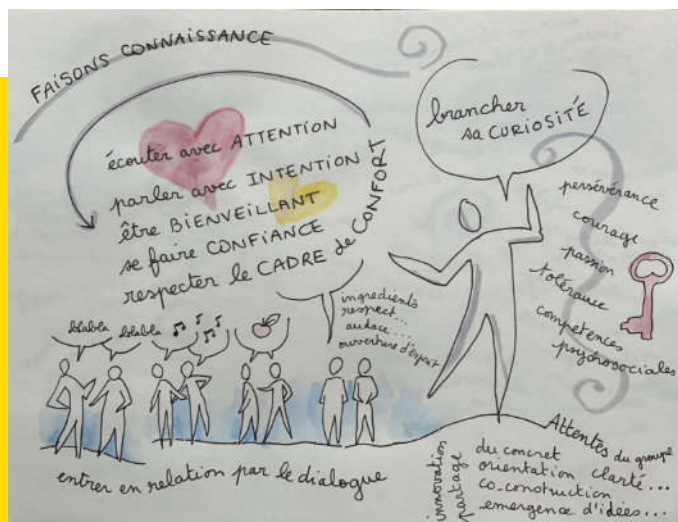 FAISONS CONNAISSANCE
écouter avec ATTENTION
parler avec INTENTION
être BIENVEILLANT
se faire CONFIANCE
respecter le CADRE de CONFORT
brancher
sa CURIOSITÉ
persévérance
courage
passion
tolérance
compétences
psychosociales
ingrédients
respect...
audace...
ouverture d'esprit
blabla
blabla
entrer en relation par le dialogue
Attentes du groupe
du concret
orientation clarté...
co-construction
emergence d'idées...
innovation
partage